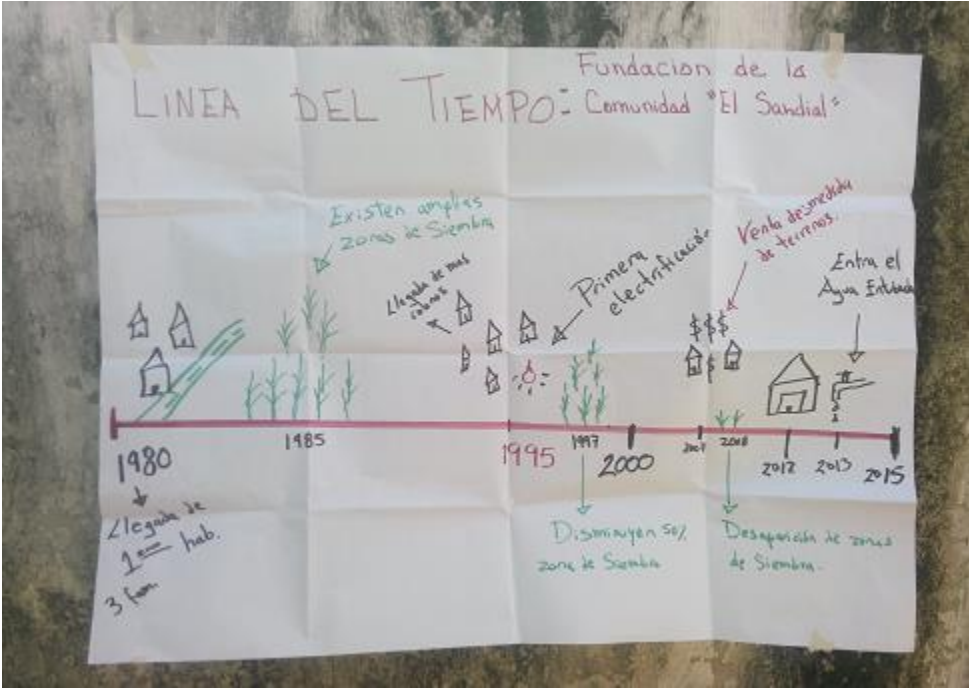 LINEA DEL TIEMPO:
Fundacion de la
Comunidad "El Sandial"
Existen amplias
zonas de Siembra
Llegada de mas
Primera
electrificación
Venta desmedida
de terrenos.
Entra el
Agua Entubada
$ $ $
$
1980
1985
1995
1997
2000
2008
2012
2013
2015
Llegada de
1eros hab.
3 fam.
Disminuyen 50%
zona de Siembra
Desaparición de zonas
de Siembra.